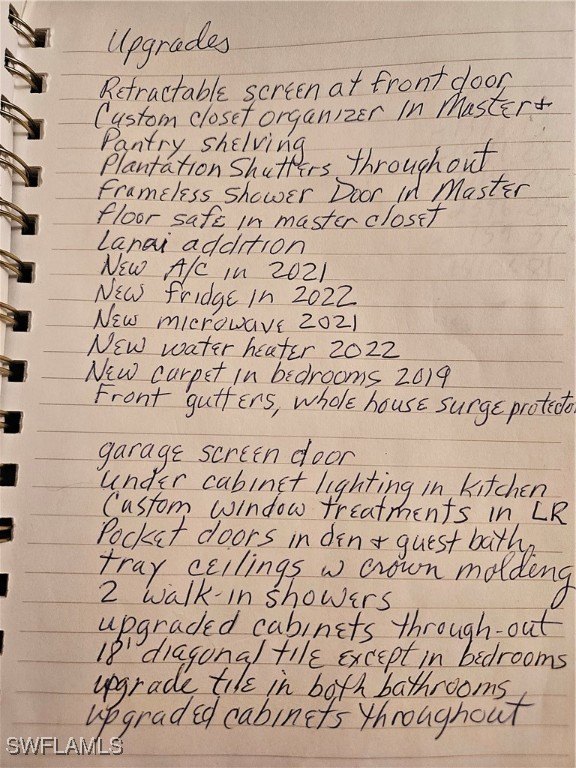 Upgrades
Retractable screen at front door
Custom closet organizer in Master +
Pantry shelving
Plantation Shutters throughout
Frameless Shower Door in Master
floor safe in master closet
Lanai addition
New A/c in 2021
New fridge in 2022
New microwave 2021
New water heater 2022
New carpet in bedrooms 2019
Front gutters, whole house surge protector
garage screen door
under cabinet lighting in kitchen
Custom window treatments in LR
Pocket doors in den + guest bath
tray ceilings w crown molding
2 walk-in showers
upgraded cabinets through-out
18' diagonal tile except in bedrooms
upgrade tile in both bathrooms
upgraded cabinets throughout
SWFLAMLS